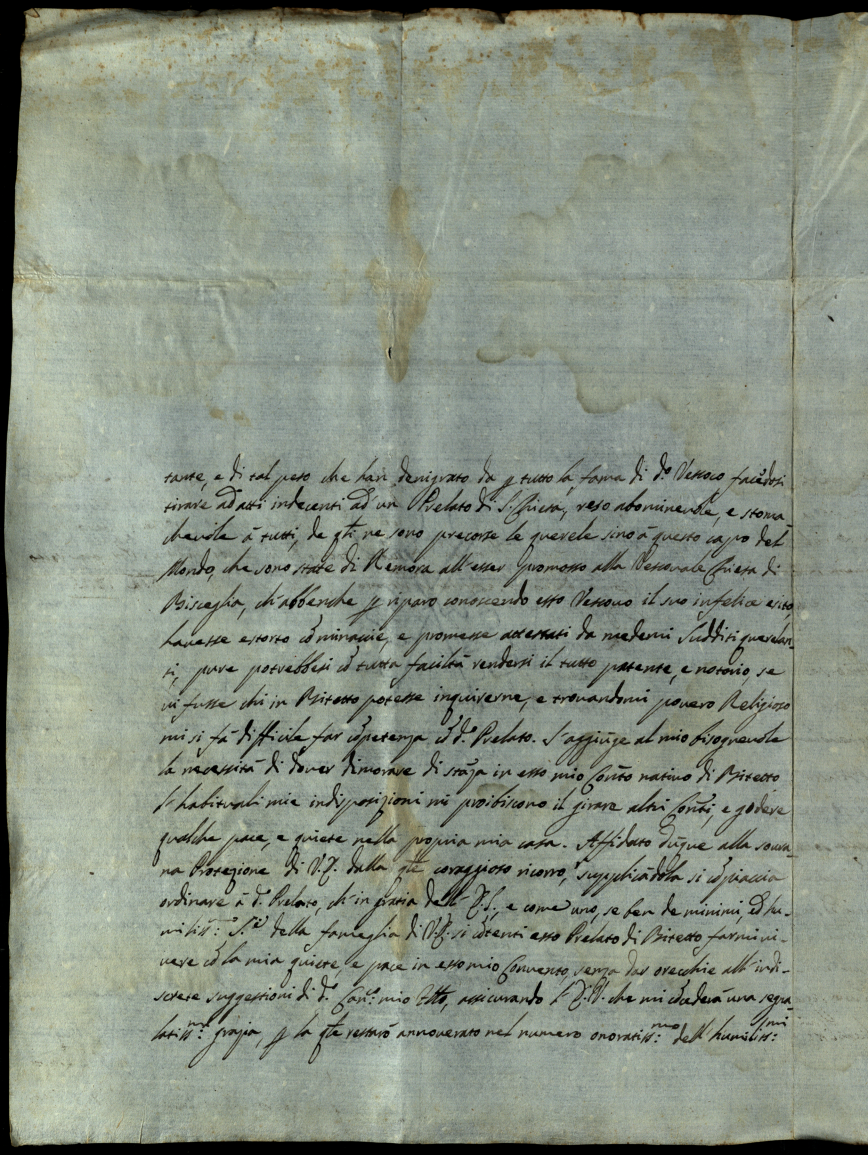 tante, e di tal peso che han denigrato da p tutto la fama di d.º Vescovo facēdosi
tirare ad atti indecenti ad un Prelato di S. Chiesa, reso abominevole, e stoma
chevole à tutti, de qti ne sono precorse le querele sino à questo capo del
Mondo, che sono state di Remora all'esser promosso alla Vescovale Chiesa di
Bisceglia, ch'abbenche p riparo conoscendo esso Vescovo il suo infelice esito,
havesse estorto cō minaccie, e promesse attestati da medemi Sudditi querelan-
ti, pure potrebbesi cō tutta faciltà rendersi il tutto patente, e notorio, se
vi fusse chi in Bitetto potesse inquirerne, e trovandomi povero Religioso
mi si fà difficile far cōpetenza cō d.º Prelato. S'aggiūge al mio bisognevole
la necessità di dover dimorare di stāza in esso mio Convto nativo di Bitetto
l'habituali mie indisposizioni mi proibiscono il girare altri Convti, e godere
qualche pace, e quiete nella propria mia casa. Affidato dūque alla sovra
na Protezione di V.E. dalla qle coraggioso ricorro, supplicādola si cōpiaccia
ordinare à d.º Prelato, ch'in gratia dell' E.S., e come uno, se ben de minimi, ed hu-
miliss.i S.ri della fameglia di V.E. si cōtenti esso Prelato di Bitetto farmi vi-
vere cō la mia quiete, e pace in esso mio Convento, senza dar orecchie all'indi-
screte suggestioni di d.º Can.co mio, assicurando l'E.V. che mi cōcederà una segna
latiss.ma grazia, p la qle restarò annoverato nel numero onoratiss.mo dell' humiliss.mi